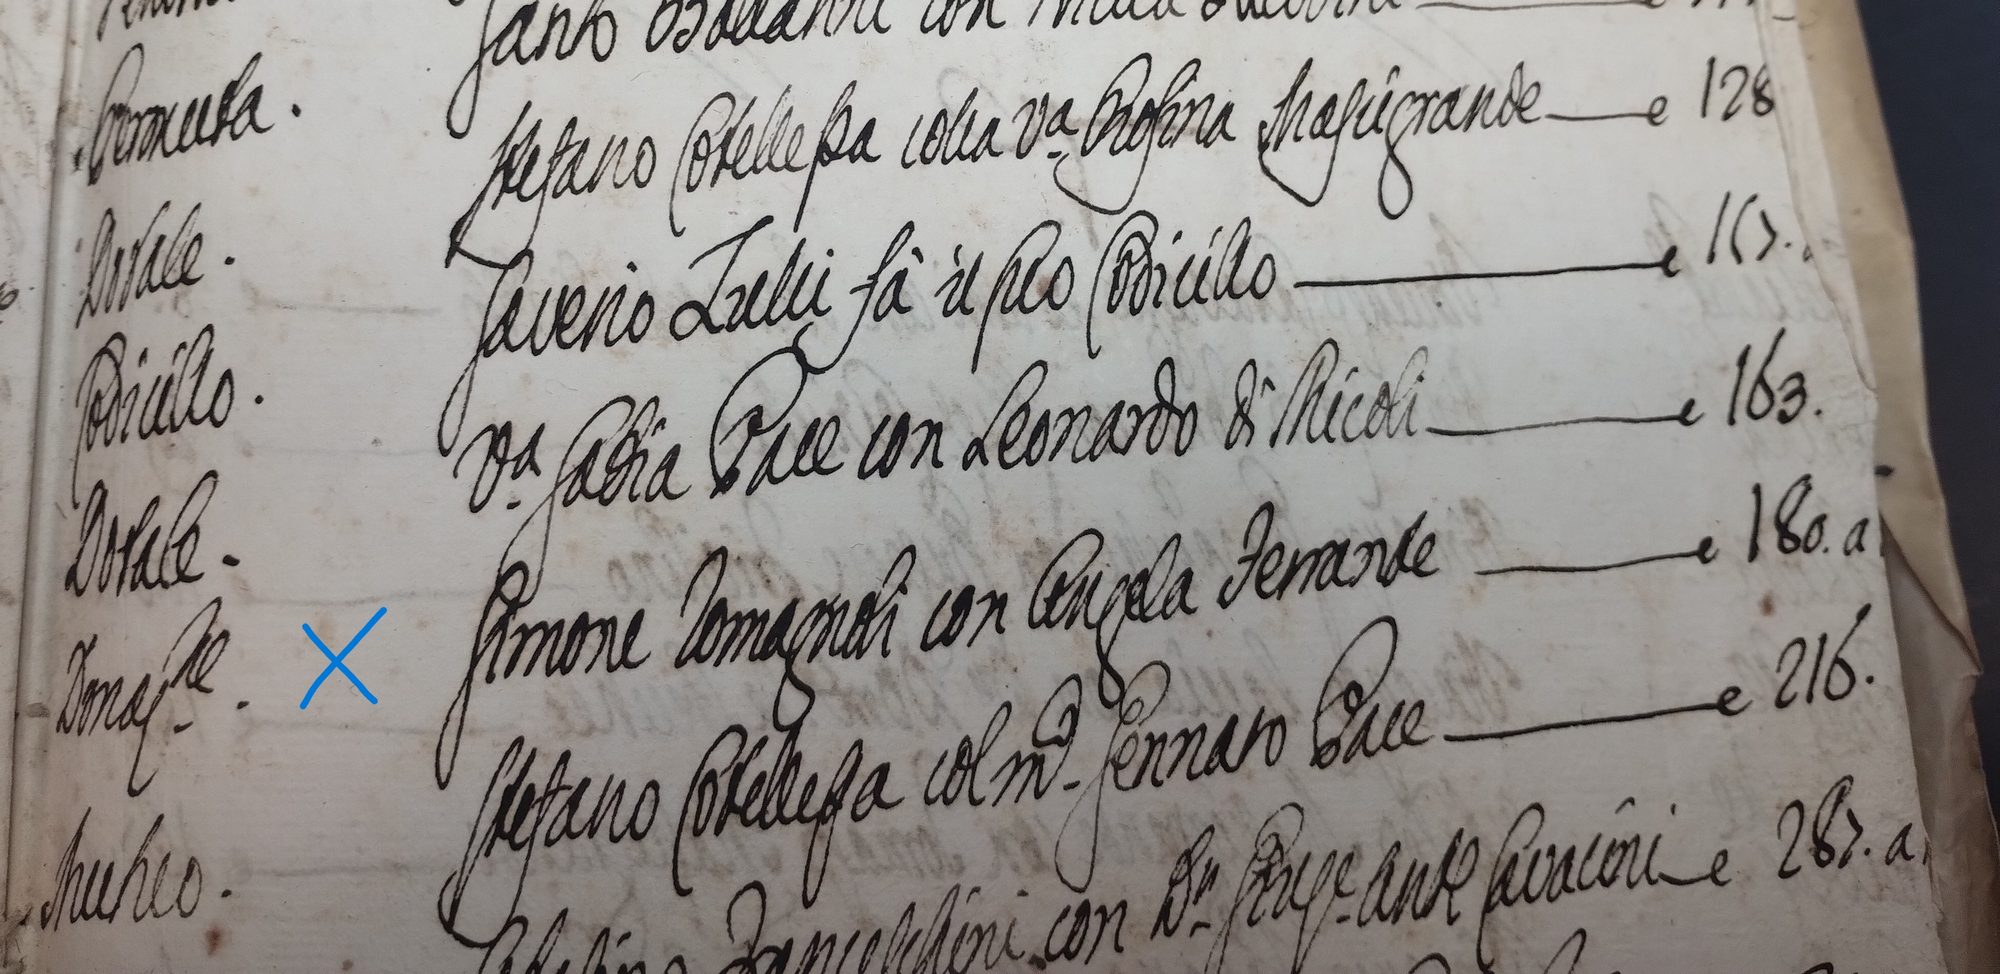 Santo con
Permuta. Stefano Cotellessa colla Va. Rosina Masigrande e 128
Dotale. Saverio Lalli fà il suo Codicillo e 167.
Codicillo. Va. Sabia Pace con Leonardo di Nicoli e 163.
Dotale. Simone Romagnoli con Angela Ferrante e 180. a
Donazne. Stefano Cotellessa col md. Gennaro Pace e 216.
Mutuo. Franceschini con Dn. Giuse. Ante Cavacini e 287. a